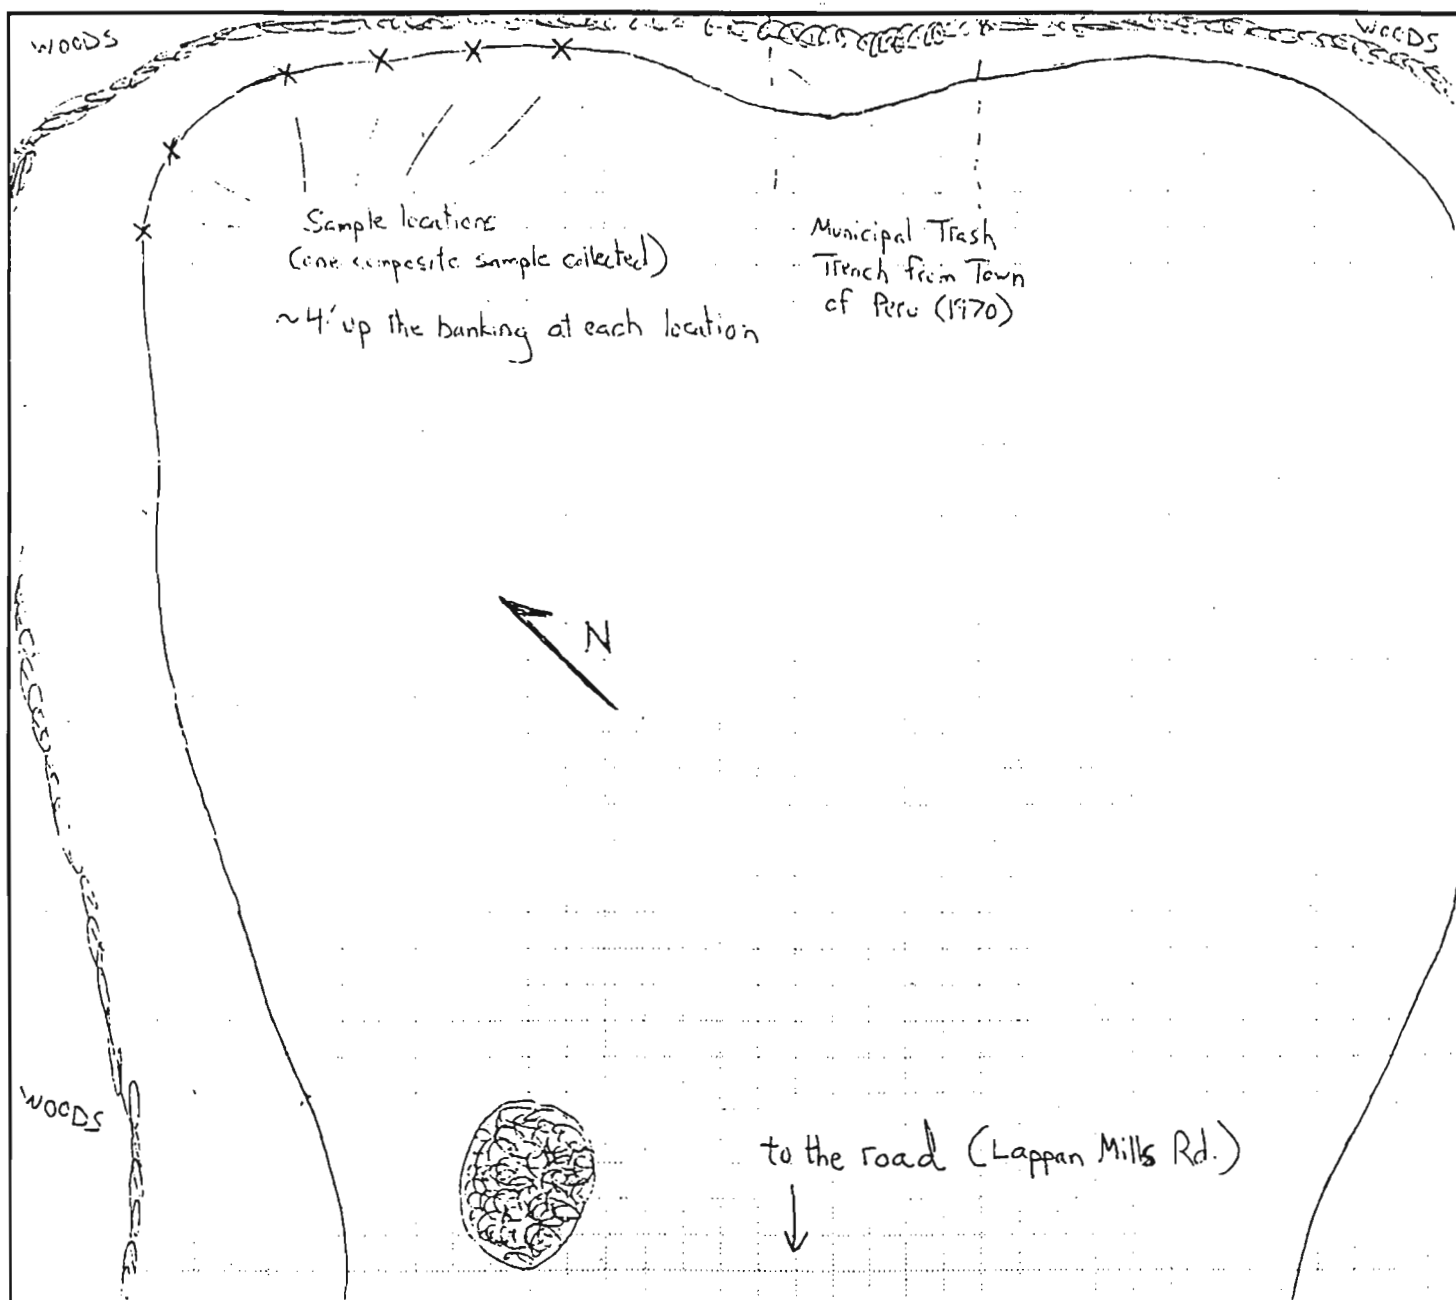 WOODS
WOODS
Sample locations
(one composite sample collected)
~4' up the banking at each location
Municipal Trash
Trench from Town
of Peru (1970)
N
WOODS
to the road (Lappan Mills Rd.)